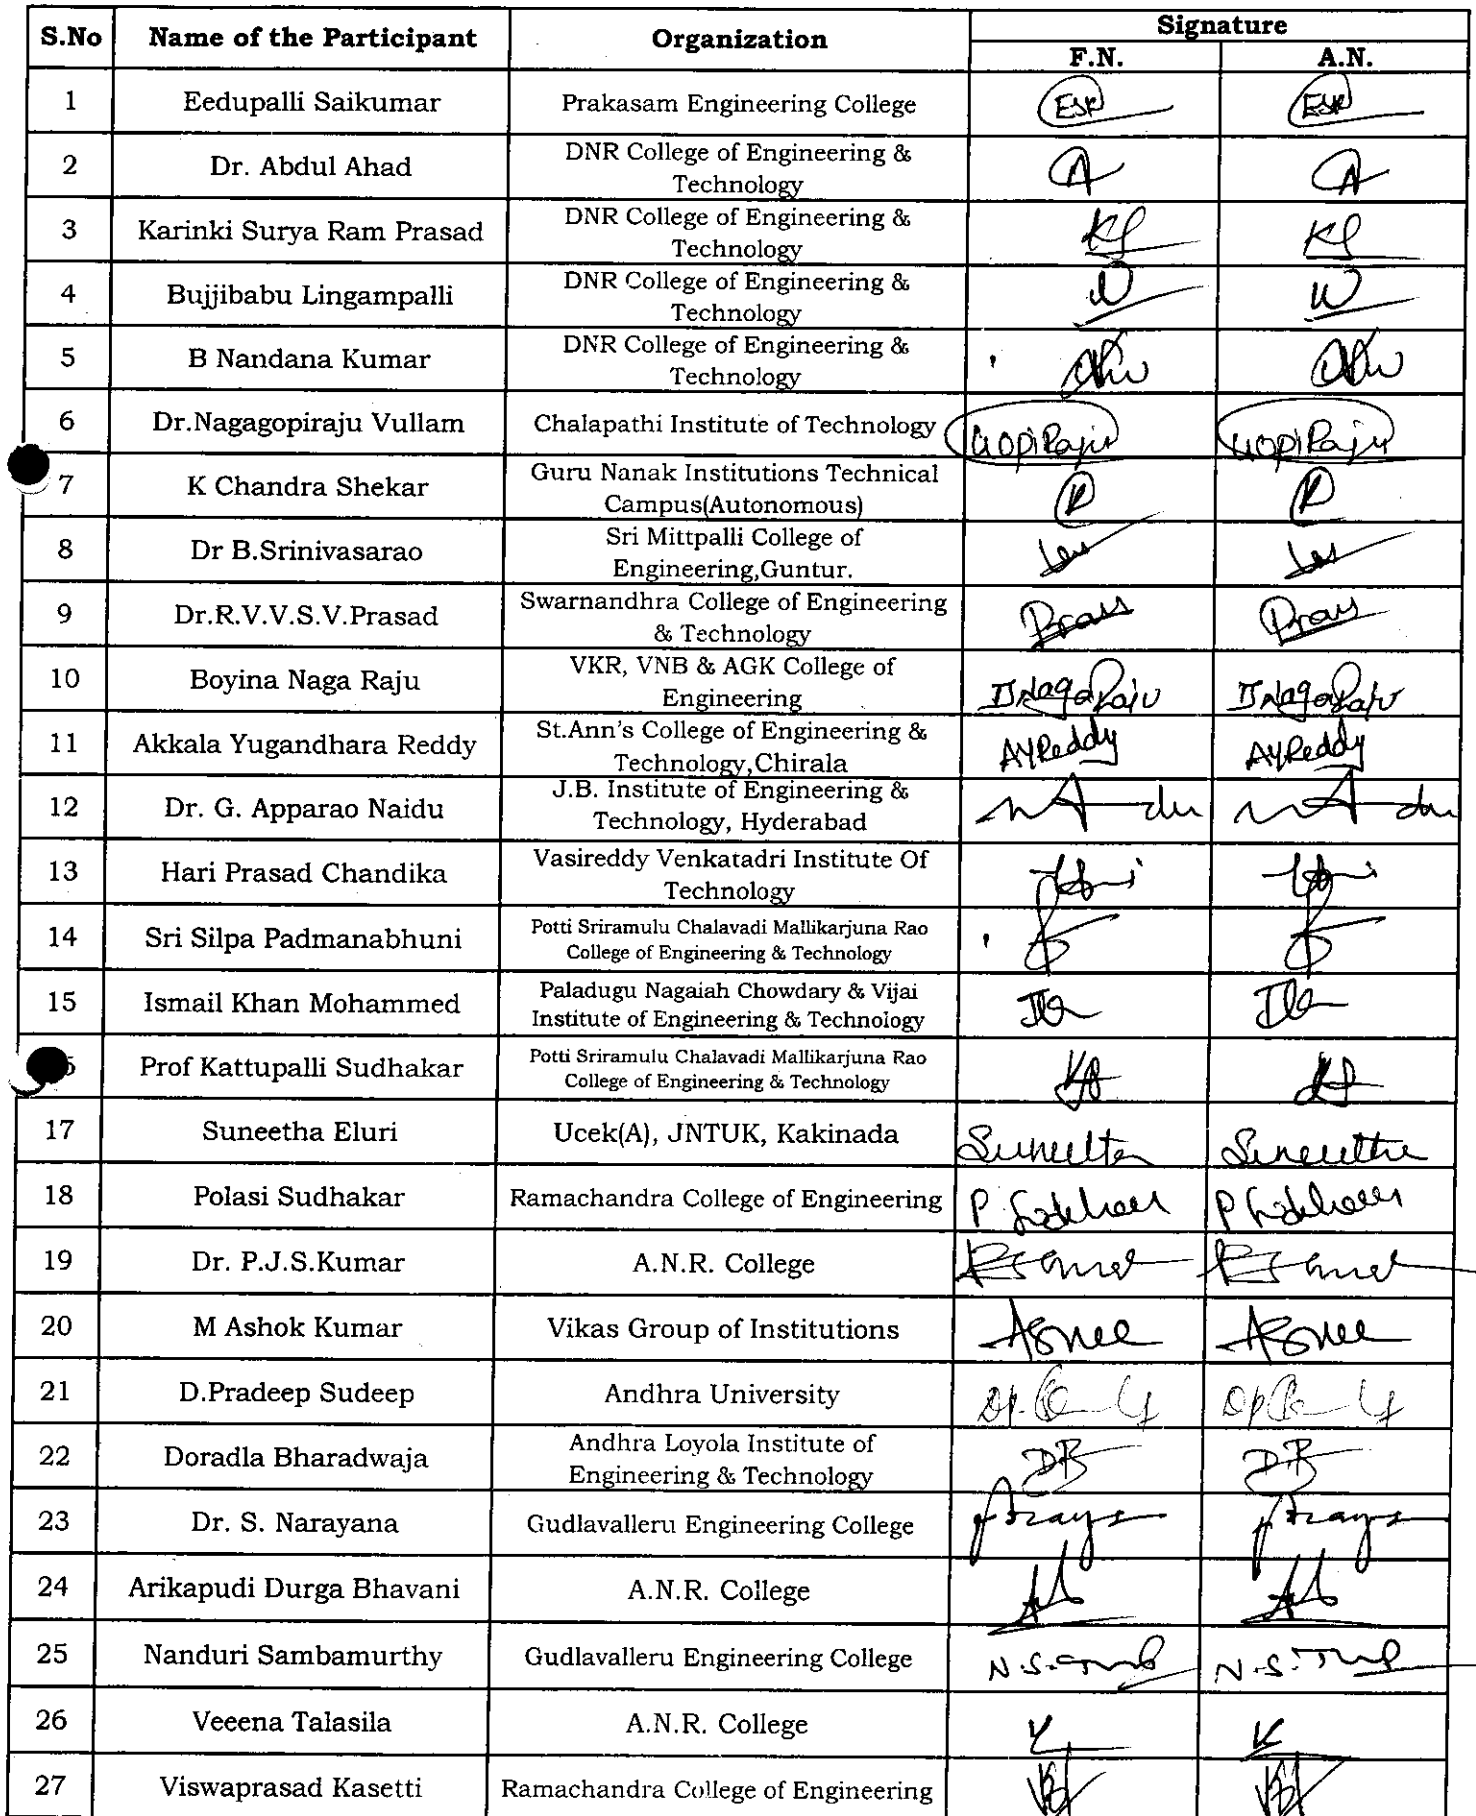 S.No Name of the Participant Organization Signature
F.N. A.N.
1 Eedupalli Saikumar Prakasam Engineering College ESK ESK
2 Dr. Abdul Ahad DNR College of Engineering &
Technology
3 Karinki Surya Ram Prasad DNR College of Engineering &
Technology
4 Bujjibabu Lingampalli DNR College of Engineering &
Technology
5 B Nandana Kumar DNR College of Engineering &
Technology
6 Dr.Nagagopiraju Vullam Chalapathi Institute of Technology GopiRaju GopiRaju
7 K Chandra Shekar Guru Nanak Institutions Technical
Campus(Autonomous)
8 Dr B.Srinivasarao Sri Mittpalli College of
Engineering,Guntur.
9 Dr.R.V.V.S.V.Prasad Swarnandhra College of Engineering
& Technology
10 Boyina Naga Raju VKR, VNB & AGK College of
Engineering BNagaRaju BNagaRaju
11 Akkala Yugandhara Reddy St.Ann's College of Engineering &
Technology,Chirala AYReddy AYReddy
12 Dr. G. Apparao Naidu J.B. Institute of Engineering &
Technology, Hyderabad
13 Hari Prasad Chandika Vasireddy Venkatadri Institute Of
Technology
14 Sri Silpa Padmanabhuni Potti Sriramulu Chalavadi Mallikarjuna Rao
College of Engineering & Technology
15 Ismail Khan Mohammed Paladugu Nagaiah Chowdary & Vijai
Institute of Engineering & Technology
Prof Kattupalli Sudhakar Potti Sriramulu Chalavadi Mallikarjuna Rao
College of Engineering & Technology
17 Suneetha Eluri Ucek(A), JNTUK, Kakinada Suneetha Suneetha
18 Polasi Sudhakar Ramachandra College of Engineering P Sudhakar P Sudhakar
19 Dr. P.J.S.Kumar A.N.R. College
20 M Ashok Kumar Vikas Group of Institutions
21 D.Pradeep Sudeep Andhra University
22 Doradla Bharadwaja Andhra Loyola Institute of
Engineering & Technology DB DB
23 Dr. S. Narayana Gudlavalleru Engineering College
24 Arikapudi Durga Bhavani A.N.R. College
25 Nanduri Sambamurthy Gudlavalleru Engineering College
26 Veeena Talasila A.N.R. College
27 Viswaprasad Kasetti Ramachandra College of Engineering